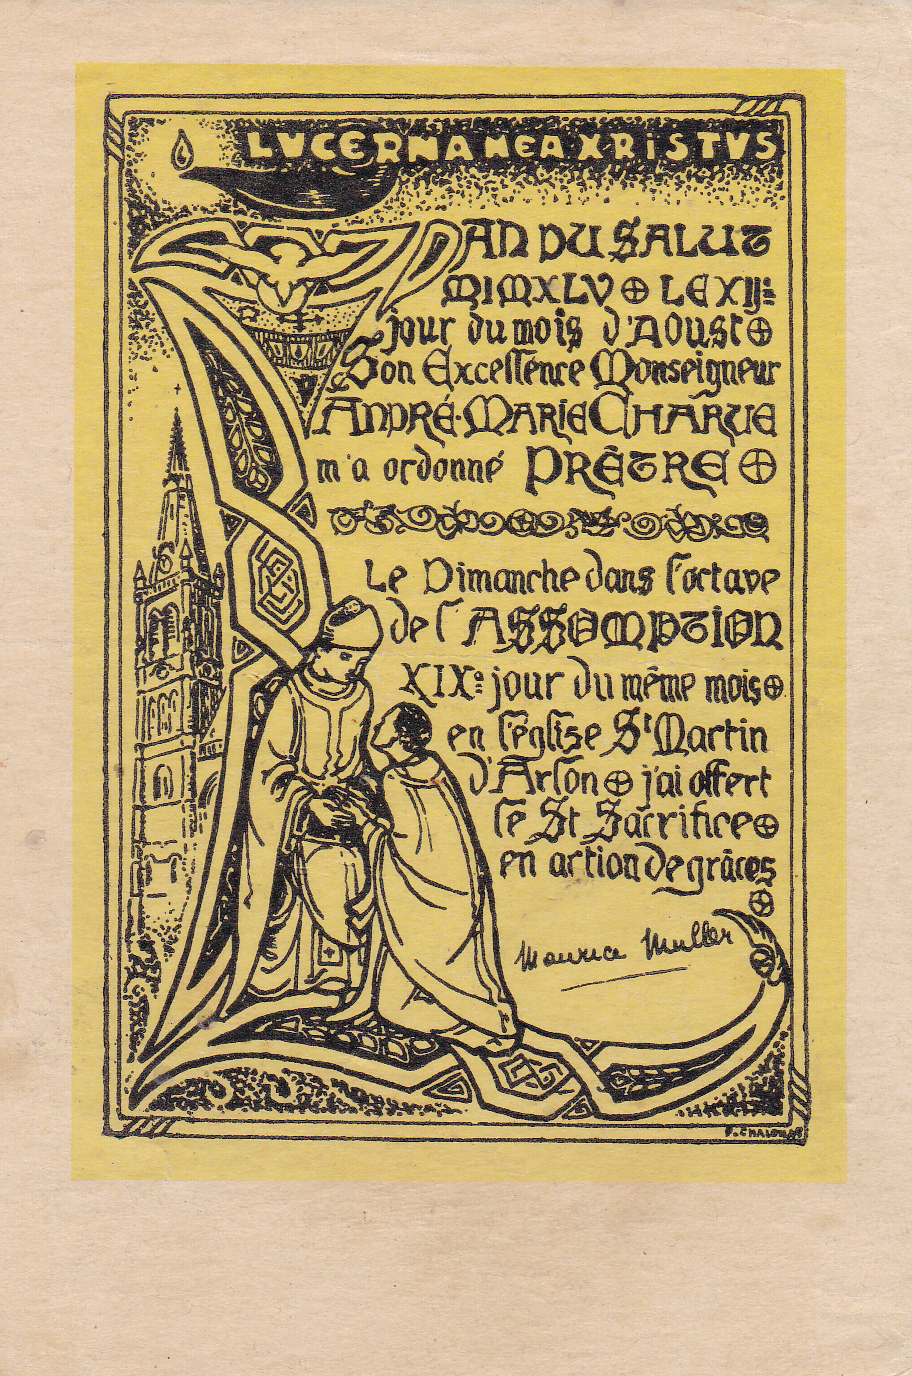 LVCERNA MEA XRISTVS
L'AN DU SALUT
MIMXLV ⊕ LE XIJe
jour du mois d'Aoust ⊕
Son Excellence Monseigneur
ANDRÉ-MARIE CHARUE
m'a ordonné PRÊTRE ⊕
Le Dimanche dans l'octave
de l'ASSOMPTION
XIXe jour du même mois ⊕
en l'église St Martin
d'Arlon ⊕ j'ai offert
le St Sacrifice ⊕
en action de grâces
⊕
Maurice Muller